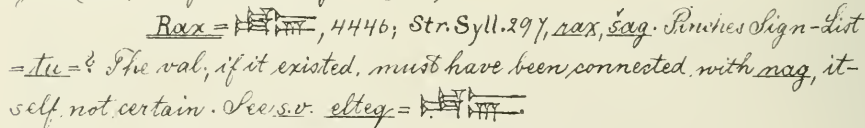 Rax = , 4446; Str. Syll. 297, rax, šag. Pinches Sign-List
= tu = ? The val., if it existed, must have been connected with nag, it-
self not certain. See s.v. elteg = .